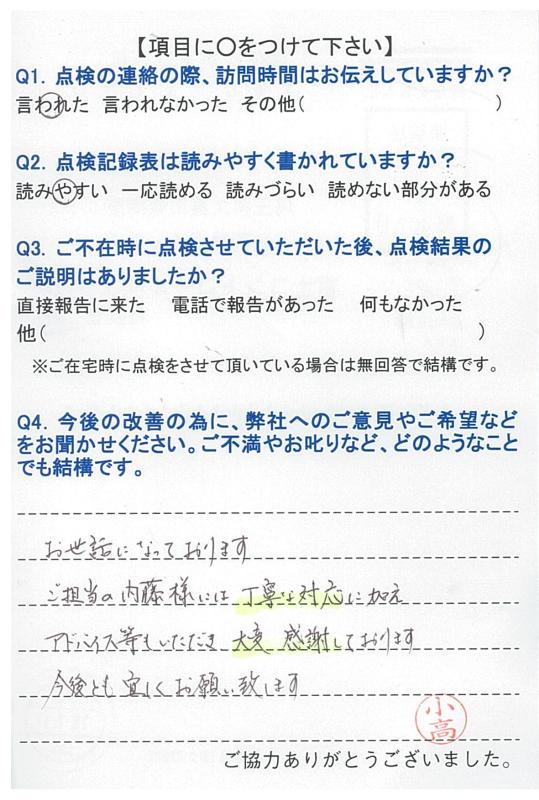 【項目に○をつけて下さい】
Q1. 点検の連絡の際、訪問時間はお伝えしていますか？
言われた 言われなかった その他( )
Q2. 点検記録表は読みやすく書かれていますか？
読みやすい 一応読める 読みづらい 読めない部分がある
Q3. ご不在時に点検させていただいた後、点検結果の
ご説明はありましたか？
直接報告に来た 電話で報告があった 何もなかった
他( )
※ご在宅時に点検をさせて頂いている場合は無回答で結構です。
Q4. 今後の改善の為に、弊社へのご意見やご希望など
をお聞かせください。ご不満やお叱りなど、どのようなこと
でも結構です。
お世話になっております
ご担当の内藤様には丁寧な対応に加え
アドバイス等もいただき 大変 感謝しております
今後とも宜しくお願い致します
小高
ご協力ありがとうございました。